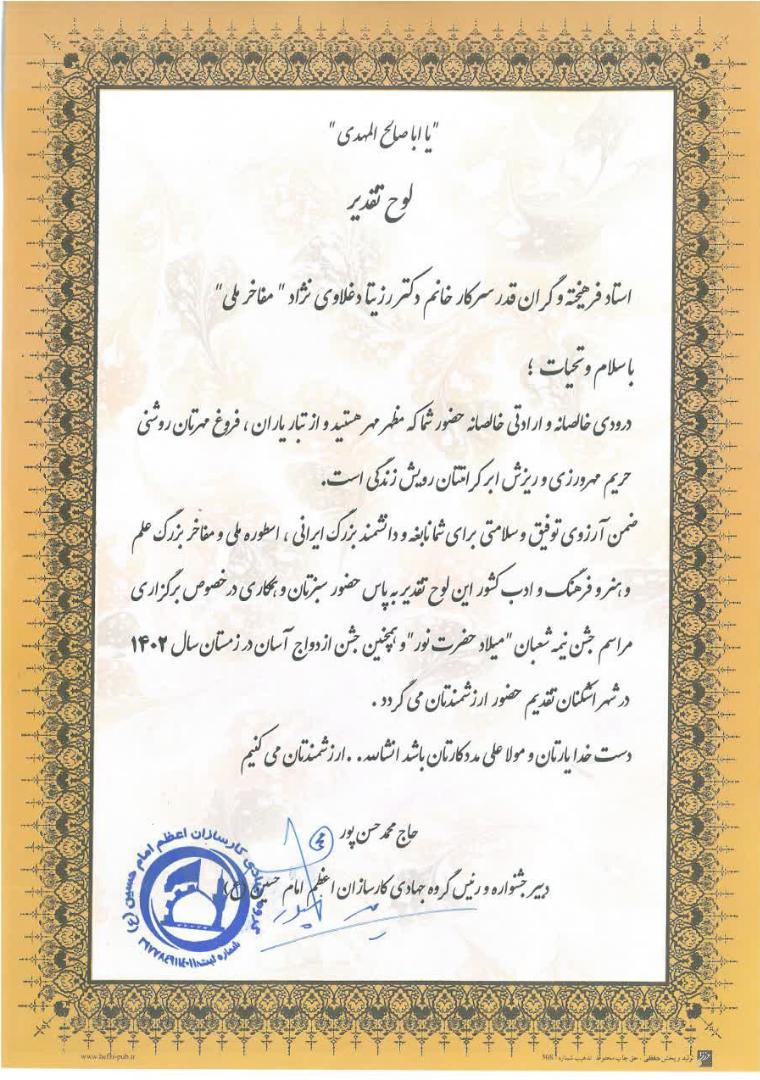 "یا ابا صالح المهدی"
لوح تقدیر
استاد فرهیخته و گران قدر سرکار خانم دکتر رزیتا دغلاوی نژاد "مفاخر ملی"
با سلام و تحیات ؛
درودی خالصانه و ارادتی خالصانه حضور شما که مظهر مهر هستید و از تبار یاران ، فروغ مهرتان روشنی
حریم مهرورزی و ریزش ابر کرامتتان رویش زندگی است.
ضمن آرزوی توفیق و سلامتی برای شما نابغه و دانشمند بزرگ ایرانی ، اسطوره ملی و مفاخر بزرگ علم
و هنر و فرهنگ و ادب کشور این لوح تقدیر به پاس حضور سبزتان و همکاری در خصوص برگزاری
مراسم جشن نیمه شعبان "میلاد حضرت نور" و همچنین جشن ازدواج آسان در زمستان سال ۱۴۰۲
در شهر اشکنان تقدیم حضور ارزشمندتان می گردد .
دست خدا یارتان و مولا علی مددکارتان باشد انشاالله. . ارزشمندتان می کنیم
حاج محمد حسن پور
دبیر جشنواره و رئیس گروه جهادی کارسازان اعظم امام حسین (ع)
گروه جهادی کارسازان اعظم امام حسین (ع)
شماره ثبت:
www.hefzi-pub.ir
تولید و پخش حفظی - حق چاپ محفوظ تذهیب شماره 568